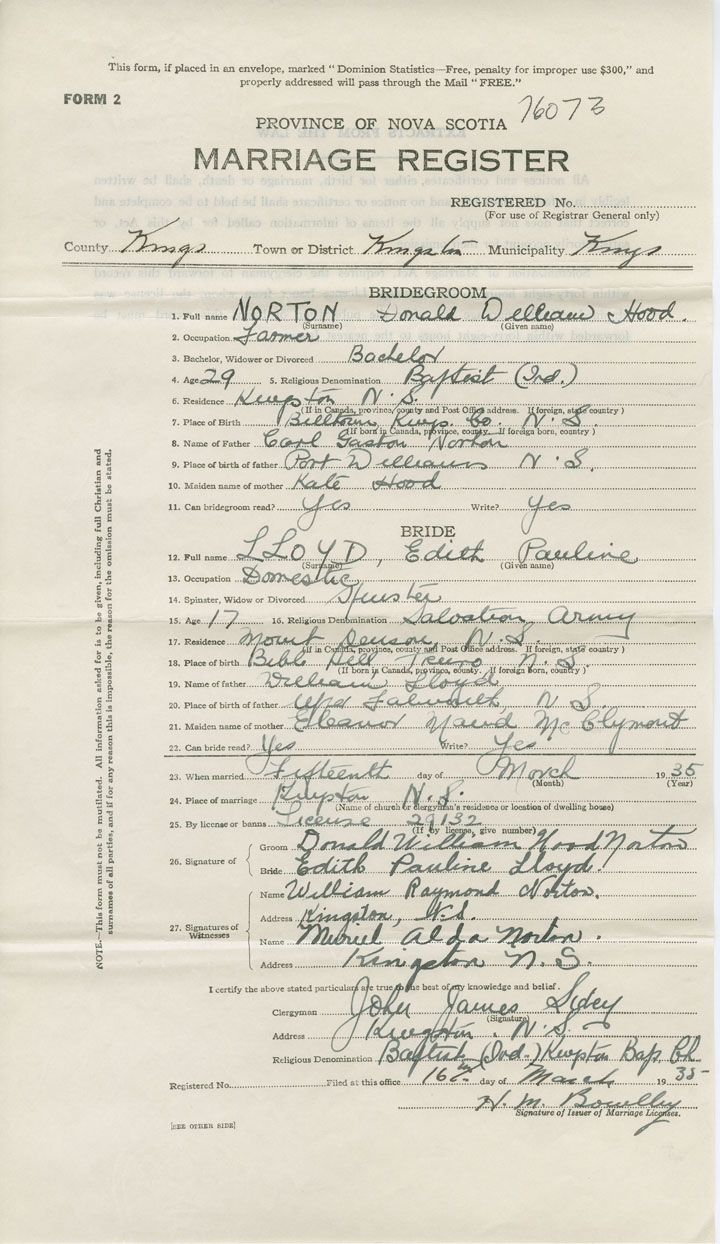 This form, if placed in an envelope, marked "Dominion Statistics—Free, penalty for improper use $300," and
properly addressed will pass through the Mail "FREE."
FORM 2
76073
PROVINCE OF NOVA SCOTIA
MARRIAGE REGISTER
REGISTERED No.
(For use of Registrar General only)
County Kings Town or District Kingston Municipality Kings
BRIDEGROOM
1. Full name NORTON Donald William Hood.
(Surname) (Given name)
2. Occupation Farmer
3. Bachelor, Widower or Divorced Bachelor
4. Age 29 5. Religious Denomination Baptist (Ind.)
6. Residence Kingston N.S.
(If in Canada, province, county and Post Office address. If foreign, state country)
7. Place of Birth Billtown Kings Co. N.S.
(If born in Canada, province, county. If foreign born, country)
8. Name of Father Carl Gaston Norton
9. Place of birth of father Port Williams N.S.
10. Maiden name of mother Kate Hood
11. Can bridegroom read? Yes Write? Yes
BRIDE
12. Full name LLOYD, Edith Pauline
(Surname) (Given name)
13. Occupation Domestic
14. Spinster, Widow or Divorced Spinster
15. Age 17 16. Religious Denomination Salvation Army
17. Residence Mount Denson, N.S.
(If in Canada, province, county and Post Office address. If foreign, state country)
18. Place of birth Bible Hill Truro N.S.
(If born in Canada, province, county. If foreign born, country)
19. Name of father William Lloyd
20. Place of birth of father N S
21. Maiden name of mother Eleanor Maud McClymont
22. Can bride read? Yes Write? Yes
23. When married Fifteenth day of March 1935
(Month) (Year)
24. Place of marriage Kingston N.S.
(Name of church or clergyman's residence or location of dwelling house)
25. By license or banns License 29132
(If by license, give number)
26. Signature of Groom Donald William Hood Norton
Bride Edith Pauline Lloyd.
27. Signatures of Witnesses Name William Raymond Norton.
Address Kingston, N.S.
Name Muriel Alda Norton.
Address Kingston N.S.
I certify the above stated particulars are true to the best of my knowledge and belief.
Clergyman John James Sidey
(Signature)
Address Kingston. N.S.
Religious Denomination Baptist (Ind.) Kingston Bap. Ch.
Registered No. Filed at this office 16th day of March 1935
H. M. Bowlby
Signature of Issuer of Marriage Licenses.
[SEE OTHER SIDE]
NOTE.—This form must not be mutilated. All information asked for is to be given, including full Christian and
surnames of all parties, and if for any reason this is impossible, the reason for the omission must be stated.